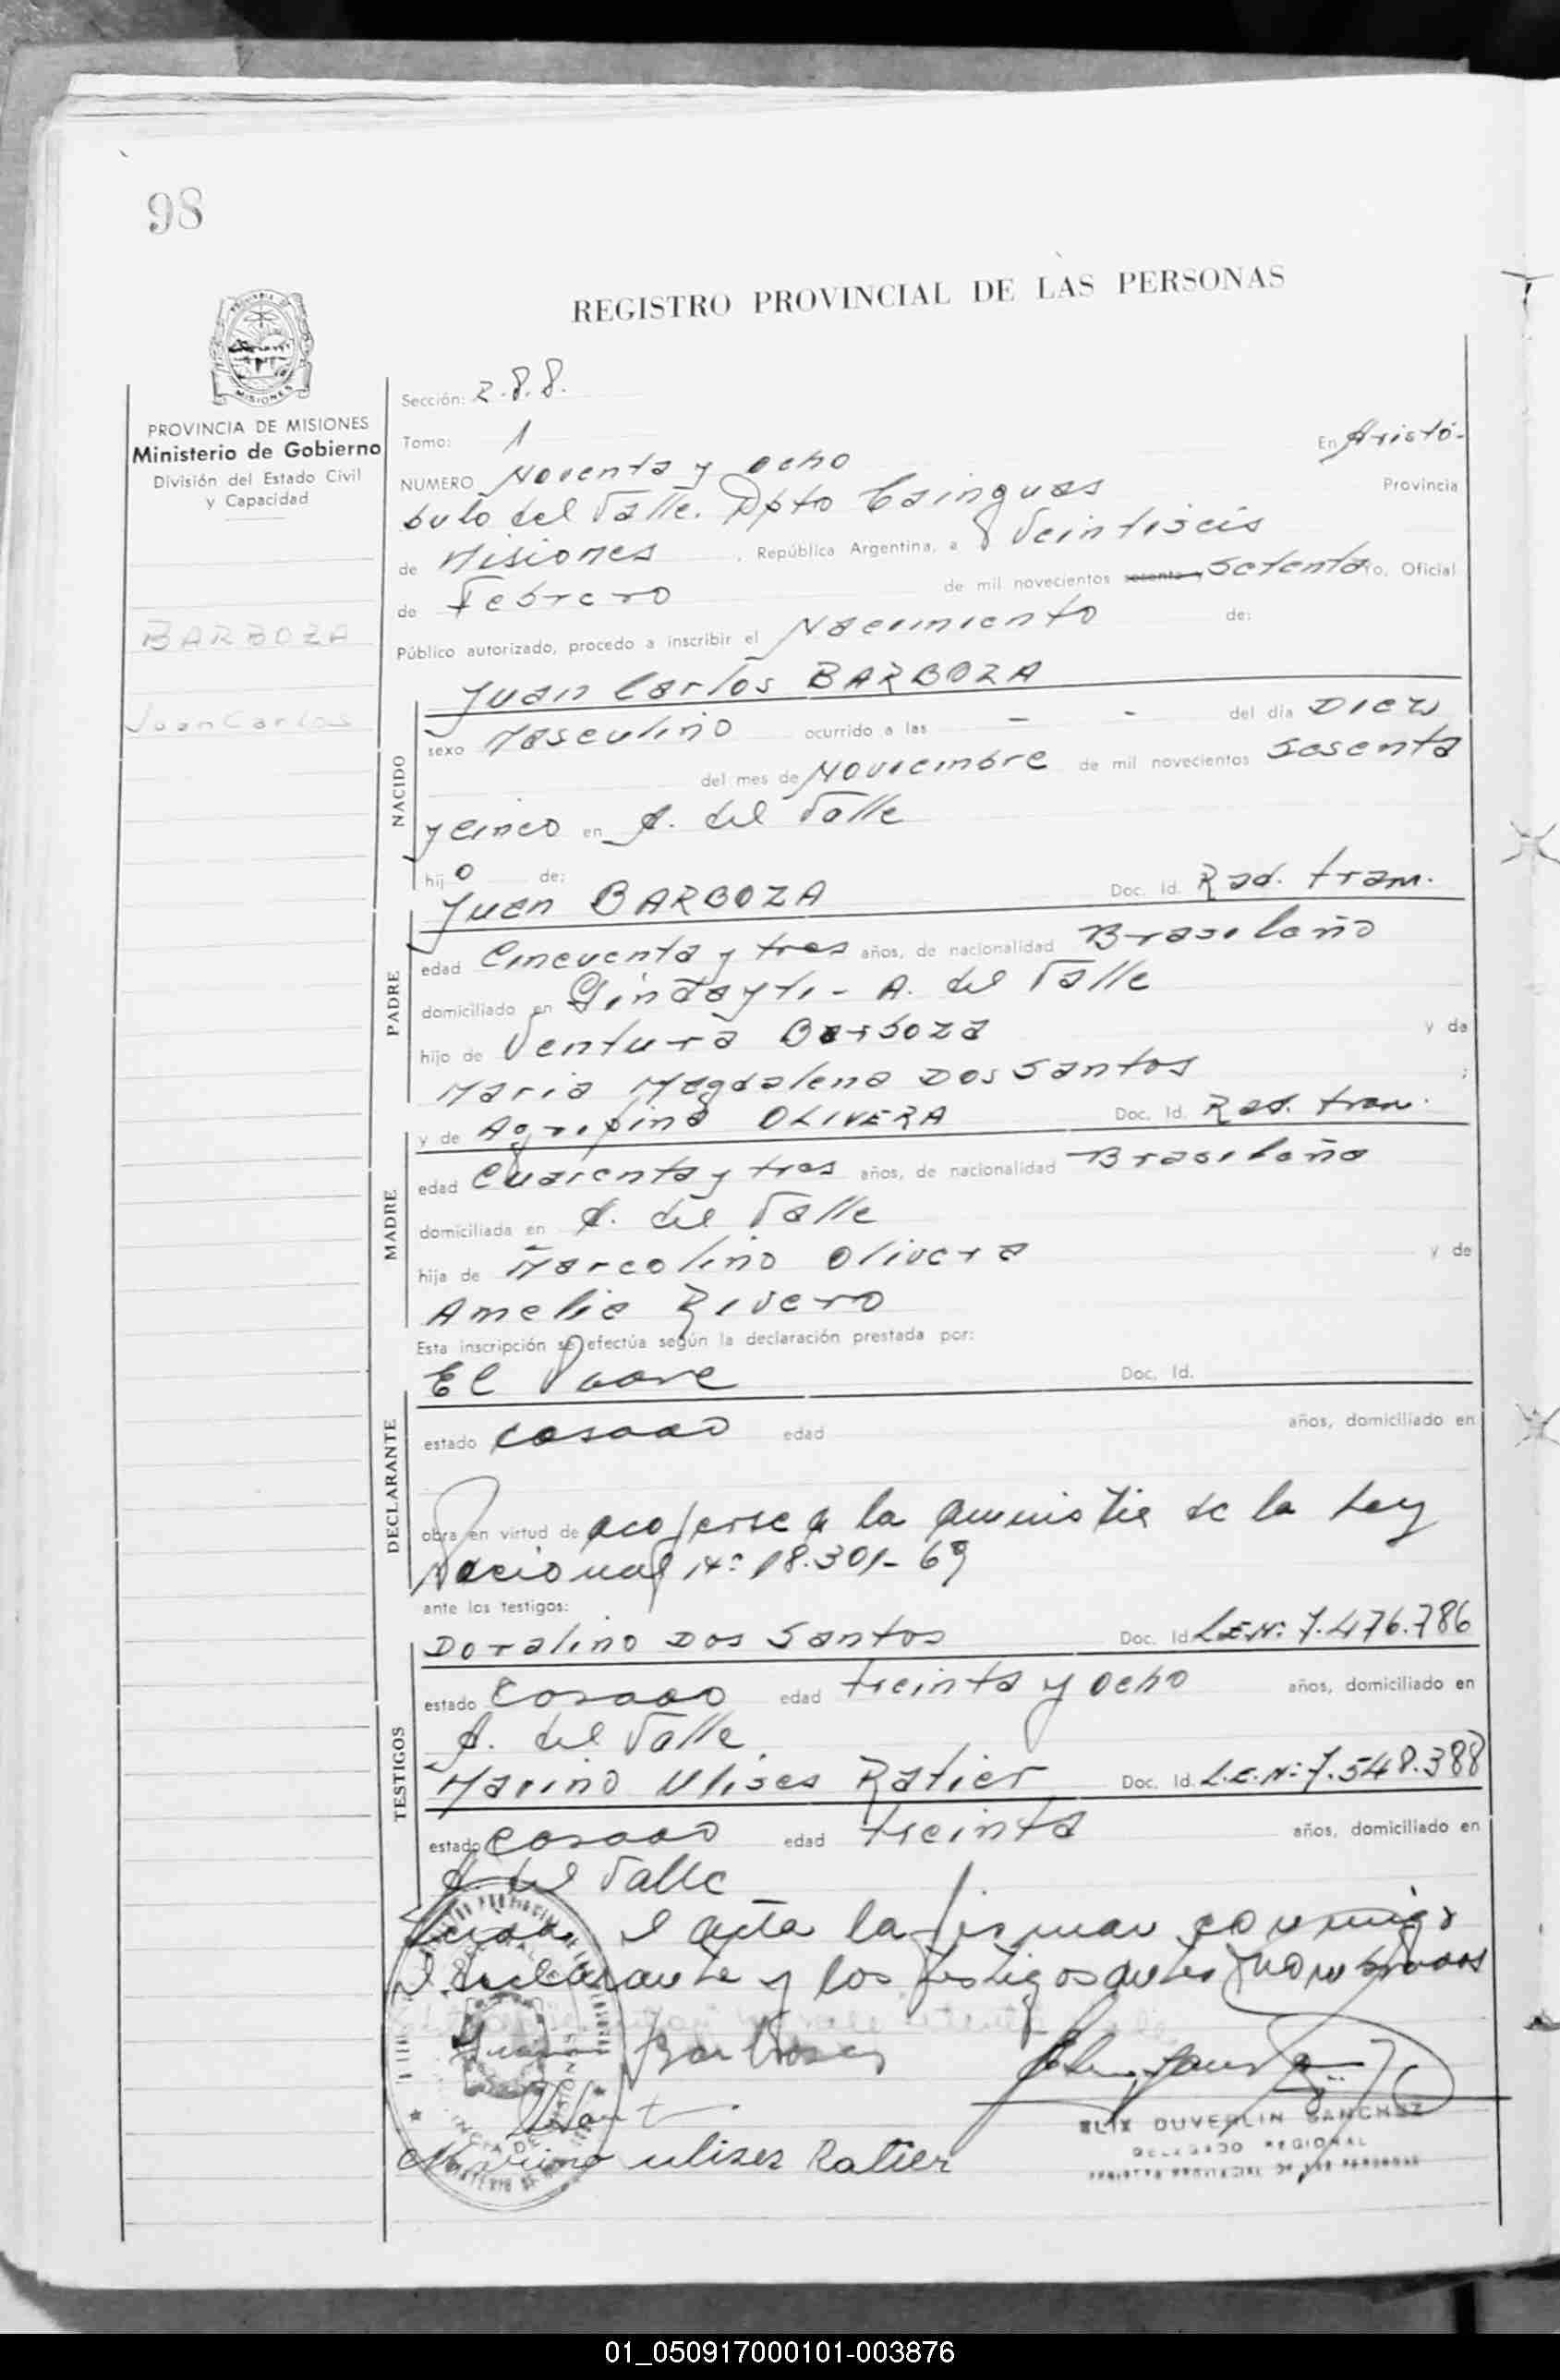 98
REGISTRO PROVINCIAL DE LAS PERSONAS
MISIONES
PROVINCIA DE MISIONES
Ministerio de Gobierno
División del Estado Civil
y Capacidad
BARBOZA
Juan Carlos
Sección: 2.8.8.
Tomo: 1
En Aristó-
NUMERO Noventa y ocho
Provincia
bulo del Valle. Dpto Cainguas
de Misiones , República Argentina, a Veintiseis
de Febrero de mil novecientos sesenta y Setenta Yo, Oficial
Público autorizado, procedo a inscribir el Nacimiento de:
Juan Carlos BARBOZA
NACIDO
sexo Masculino ocurrido a las - - del día Diez
del mes de Noviembre de mil novecientos Sesenta
y cinco en A. del Valle
hijo de:
Juan BARBOZA Doc. Id. Rad. tram.
PADRE
edad Cincuenta y tres años, de nacionalidad Brasileño
domiciliado en A. del Valle
hijo de Ventura Barboza y de
Maria Magdalena Dos Santos ;
y de Agripina OLIVERA Doc. Id. Rad. tram.
MADRE
edad Cuarenta y tres años, de nacionalidad Brasileña
domiciliada en A. del Valle
hija de Marcolino Olivera y de
Amelia Rivero
Esta inscripción se efectúa según la declaración prestada por:
El Padre Doc. Id.
DECLARANTE
estado casado edad años, domiciliado en
obra en virtud de acojerse a la amnistia de la Ley
Nacional Nº 18.301-69
ante los testigos:
Doralino Dos Santos Doc. Id. L.E.Nº 7.476.786
TESTIGOS
estado Casado edad treinta y ocho años, domiciliado en
A. del Valle
Marino Ulises Ratier Doc. Id. L.E.Nº 7.548.388
estado Casado edad treinta años, domiciliado en
A. del Valle
el acta la firman conmigo
el declarante y los testigos antes nombrados
Juan Barboza
Marino ulises Ratier
ELIX DUVERLIN SANCHEZ
DELEGADO REGIONAL
REGISTRO PROVINCIAL DE LAS PERSONAS
01_050917000101-003876